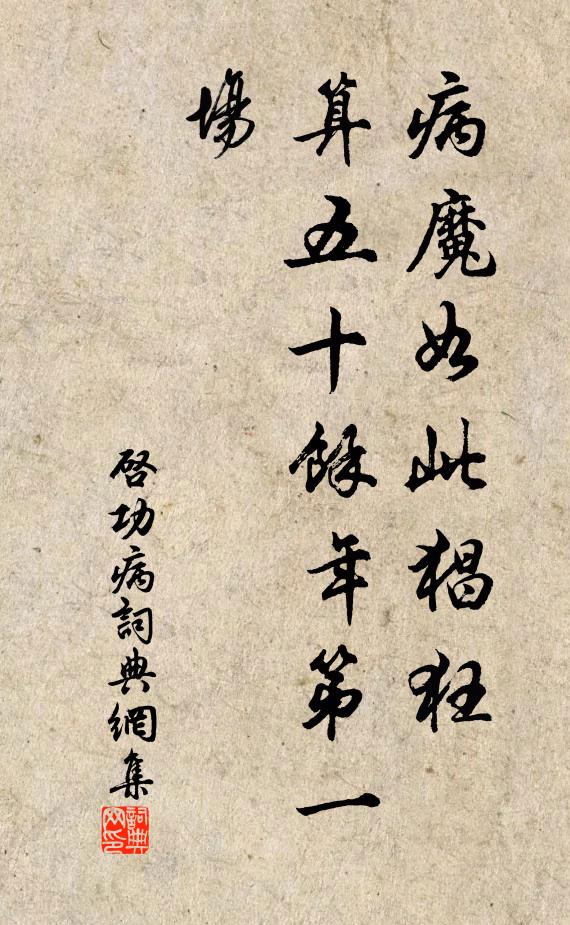 病魔如此猖狂
算五十餘年第一
場
啓功病詞典網集
詞典网印